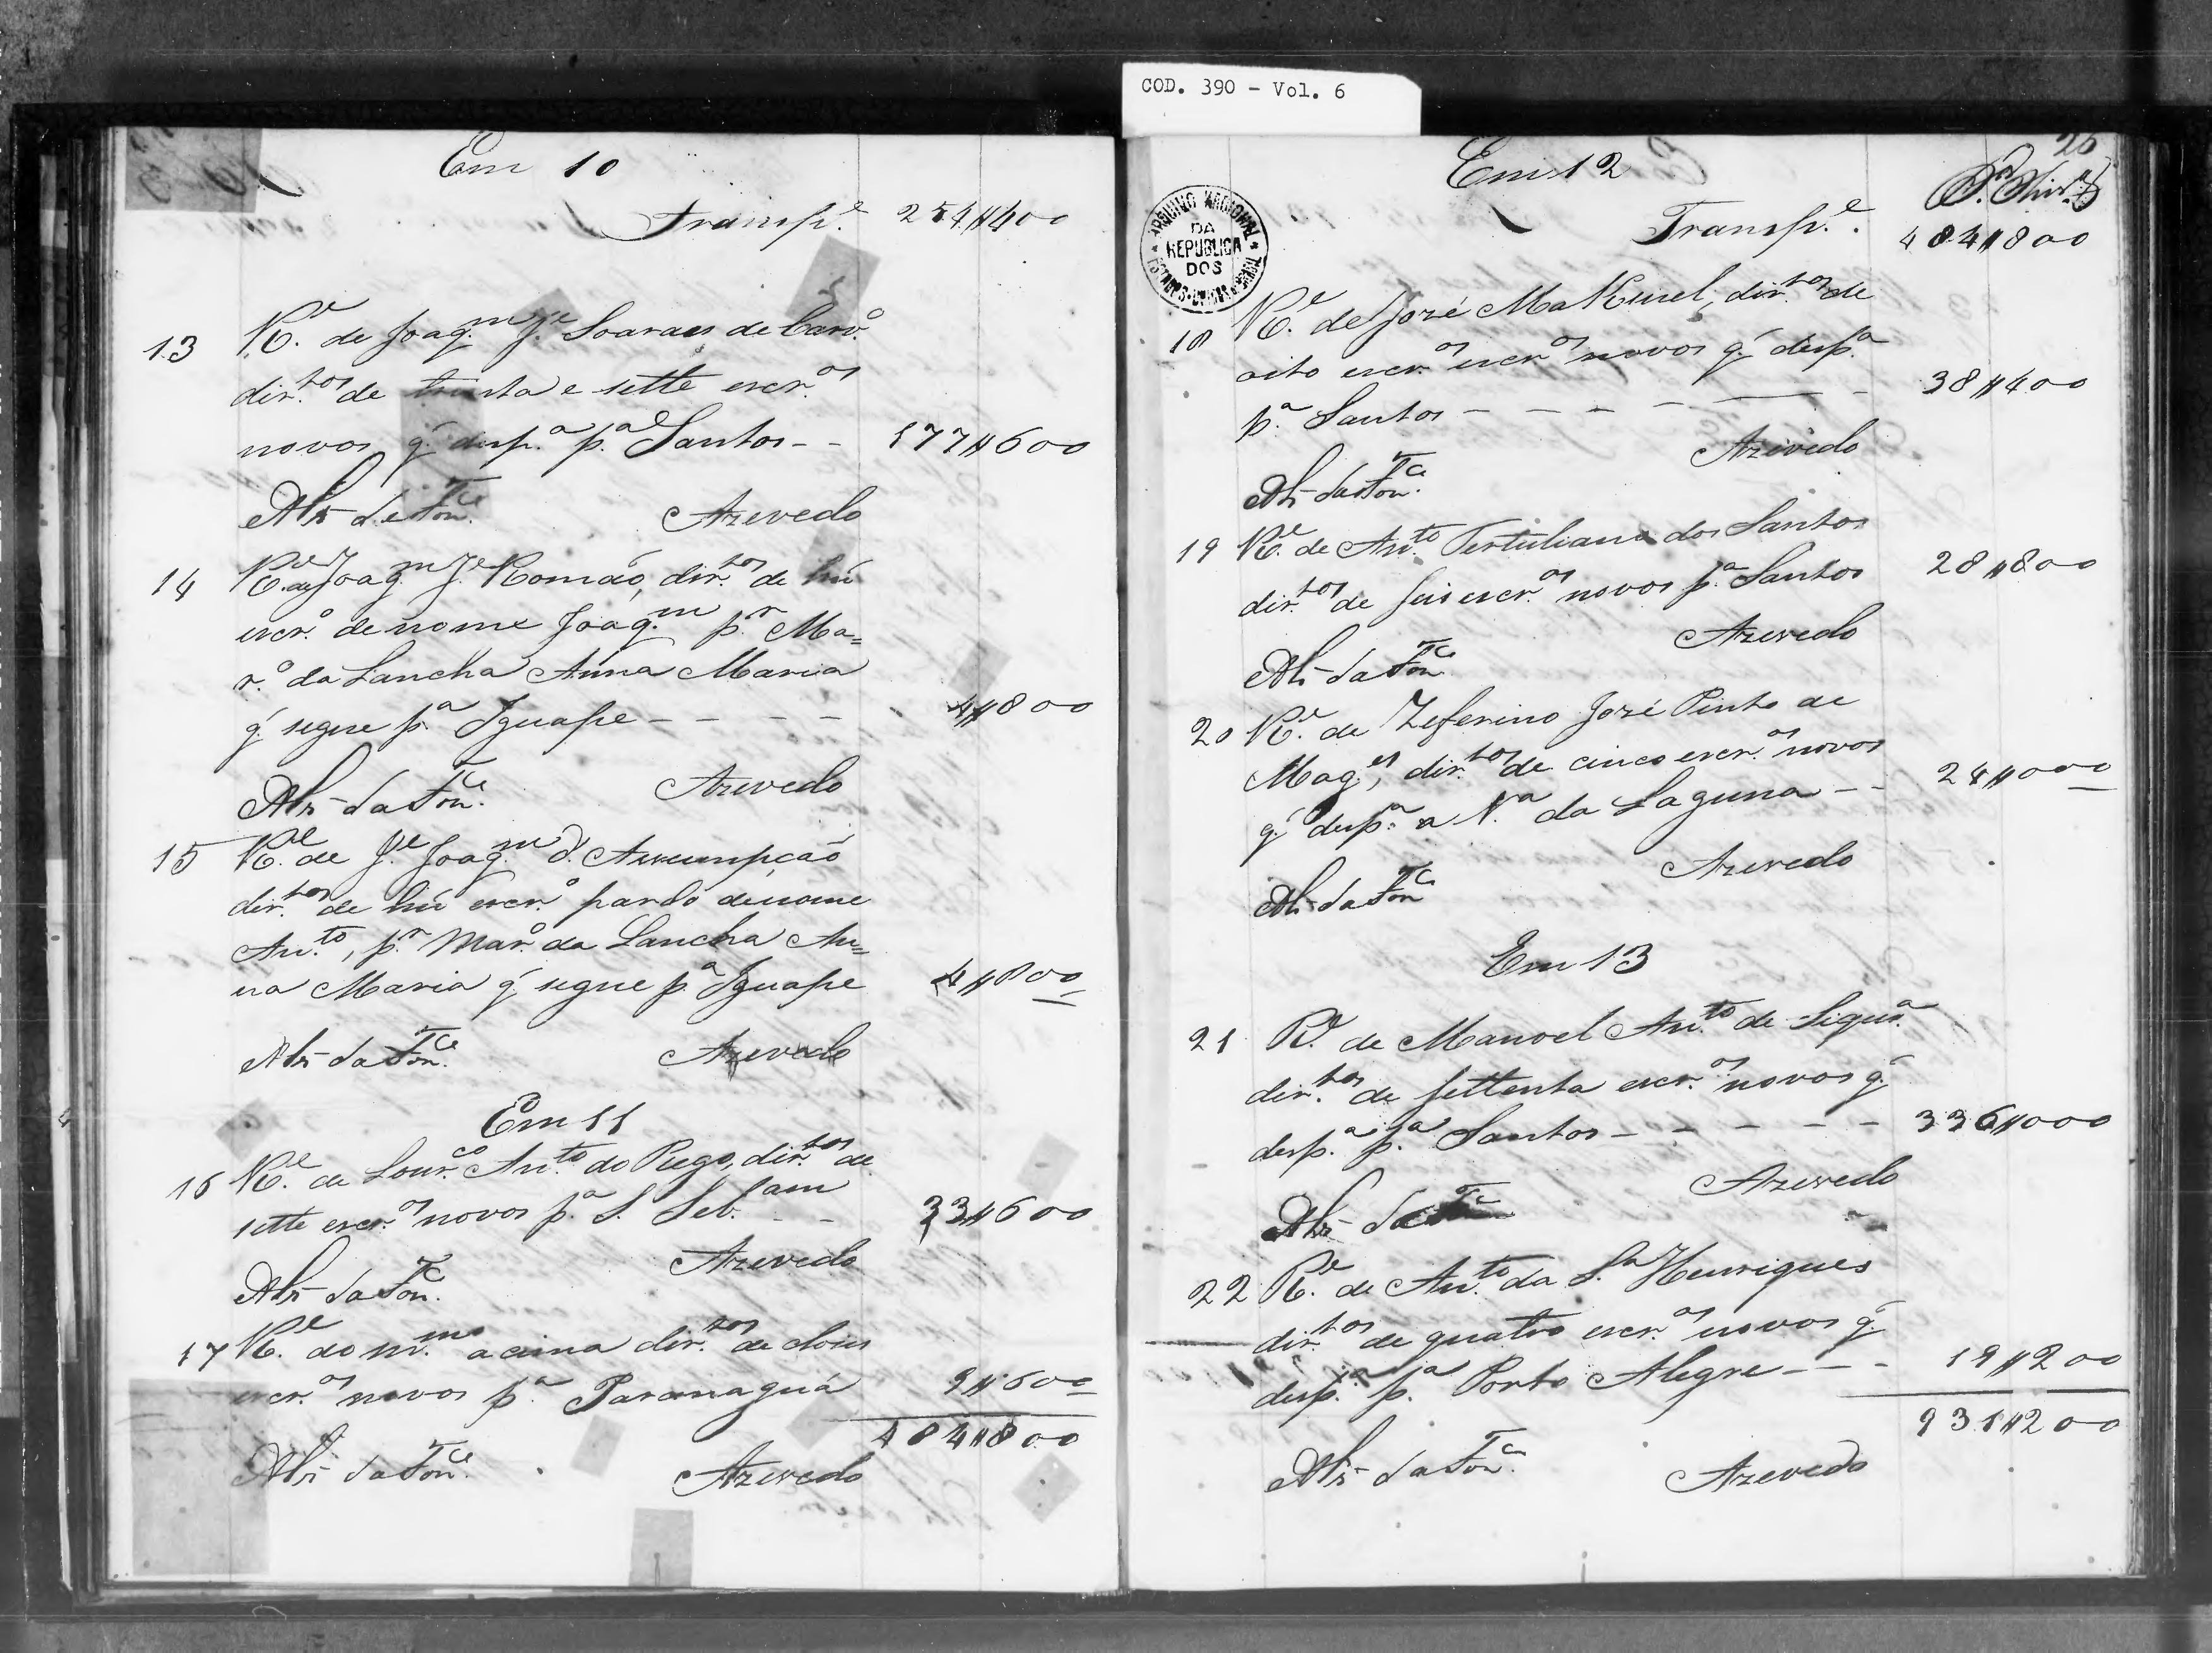 COD. 390 - Vol. 6
Em 10
Transp.e 254$400
13 R.e de Joaq.m J.e Soaraes de Carv.o
dir.tos de trinta e sette escr.os
novos q' desp.a p.a Santos - - 177$600
Alz da Fon.ca Azevedo
14 R.e de Joaq.m J.e Romão, dir.tos de hũ
escr.o de nome Joaq.m p.r Ma=
r.o da Lancha Anna Maria
q' segue p.a Iguape - - - - 4$800
Alz da Fon.ca Azevedo
15 R.e de J.e Joaq.m d'Assumpção
dir.tos de hũ escr.o pardo de nome
An.to, p.r Mar.o da Lancha An=
na Maria q' segue p.a Iguape 4$800
Alz da Fon.ca Azevedo
Em 11
16 R.e de Lour.co An.to do Rego, dir.tos de
sette escr.os novos p.a S. Seb.am - - 33$600
Alz da Fon.ca Azevedo
17 R.e do m.mo acima dir.tos de dous
escr.os novos p.a Paranaguá 9$600
484$800
Alz da Fon.ca Azevedo
26
Em 12
ARQUIVO NACIONAL
DA
REPUBLICA
DOS
Transp.e 484$800
18 R.e de José MaKuel, dir.tos de
oito escr.os escr.os novos q' desp.a
p.a Santos - - - - - 38$400
Alz da Fon.ca Azevedo
19 R.e de An.to Tertuliano dos Santos
dir.tos de seis escr.os novos p.a Santos 28$800
Alz da Fon.ca Azevedo
20 R.e de Zeferino José Pinto de
Mag.es, dir.tos de cinco escr.os novos
q' desp.a a V.a da Laguna - - 24$000
Alz da Fon.ca Azevedo
Em 13
21 R.e de Manoel An.to de Siqu.a
dir.tos de settenta escr.os novos q'
desp.a p.a Santos - - - - - 336$000
Alz da Fon.ca Azevedo
22 R.e de An.to da S.a Henriques
dir.tos de quatro escr.os novos q'
desp.a p.a Porto Alegre - - - 19$200
931$200
Alz da Fon.ca Azevedo